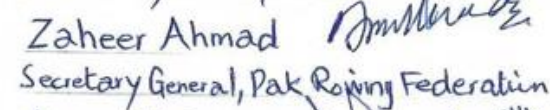 Zaheer Ahmad
Secretary General, Pak Rowing Federation